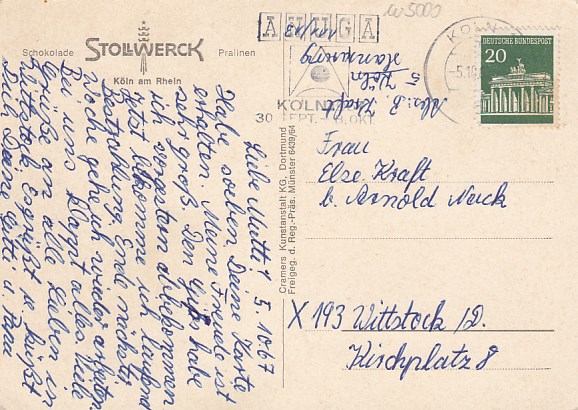 Schokolade STOLLWERCK Pralinen
Köln am Rhein
ANUGA
KÖLN
30. SEPT. - 8. OKT.
KÖLN
-5.10.
DEUTSCHE BUNDESPOST
20
W 5000
Abs: B. Kraft
5 Köln
Liebe Mutti! 5.10.67
Habe soeben Deine Karte
erhalten. Meine Freude ist
sehr groß. Den habe
ich
jetzt bekomme ich laufend
Bestrahlung. Ende nächste
Woche gehe ich wieder arbeiten.
Bei uns klappt alles. Viele
Grüße an alle Lieben in
Wittstock. Es grüßt u. küßt
Dich Deine
Cramers Kunstanstalt KG., Dortmund
Freigeg. d. Reg.-Präs. Münster 6439/64
Frau
Else Kraft
b. Arnold
X 193 Wittstock / D.
Kirchplatz 8